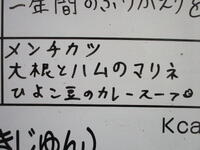 一年間のふりかえりを
メンチカツ
大根とハムのマリネ
ひよこ豆のカレースープ
Kca
きじゅん)